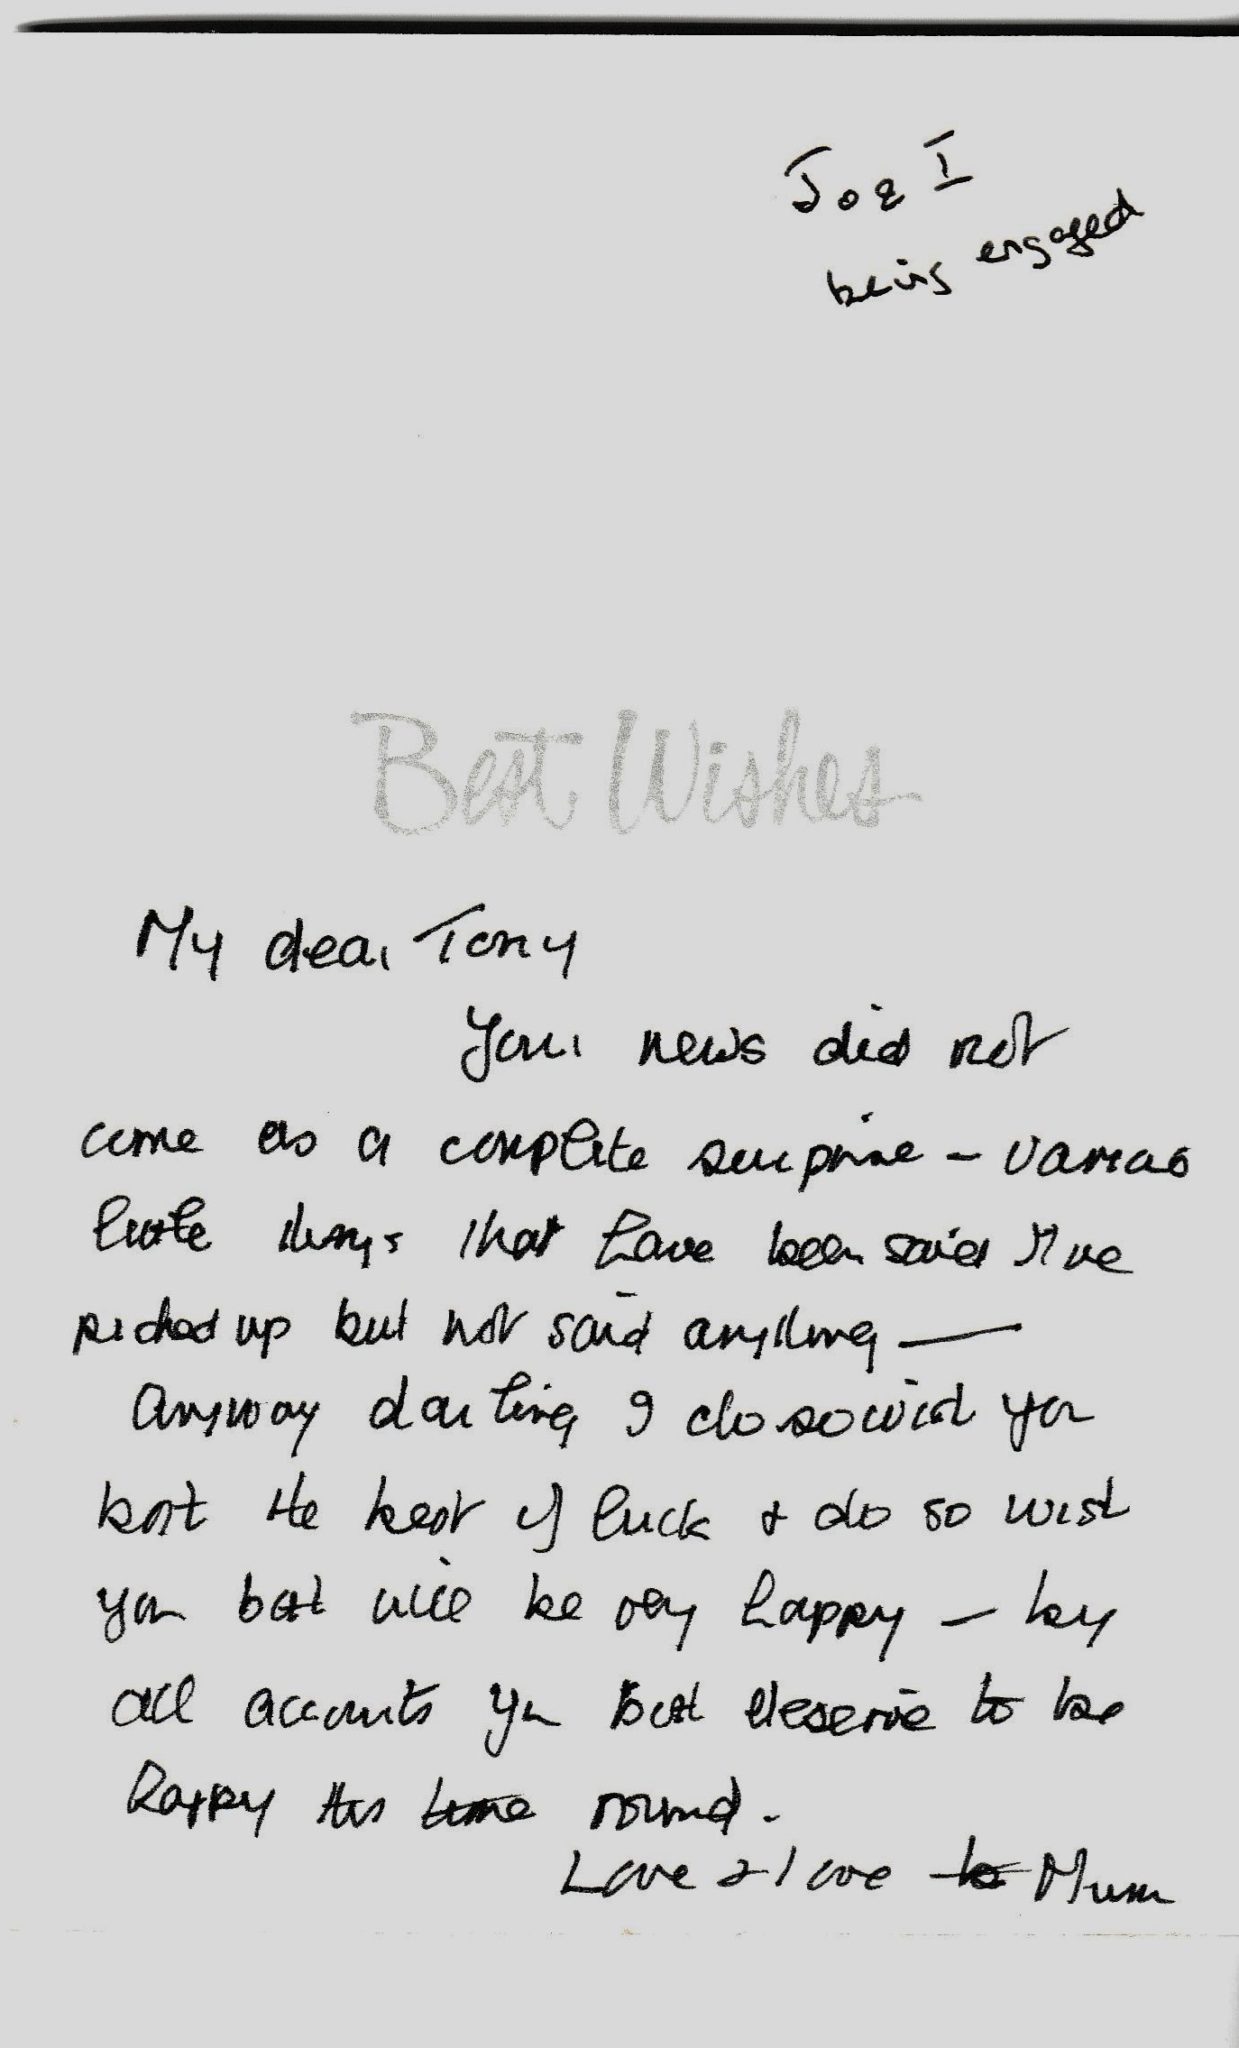 Jo & I
being engaged
Best Wishes
My dear Tony
Your news did not
come as a complete surprise - various
little things that have been said I've
picked up but not said anything —
Anyway darling I do so wish you
both the best of luck & do so wish
you both will be very happy — by
all accounts you both deserve to be
happy this time round.
Love & love Mum